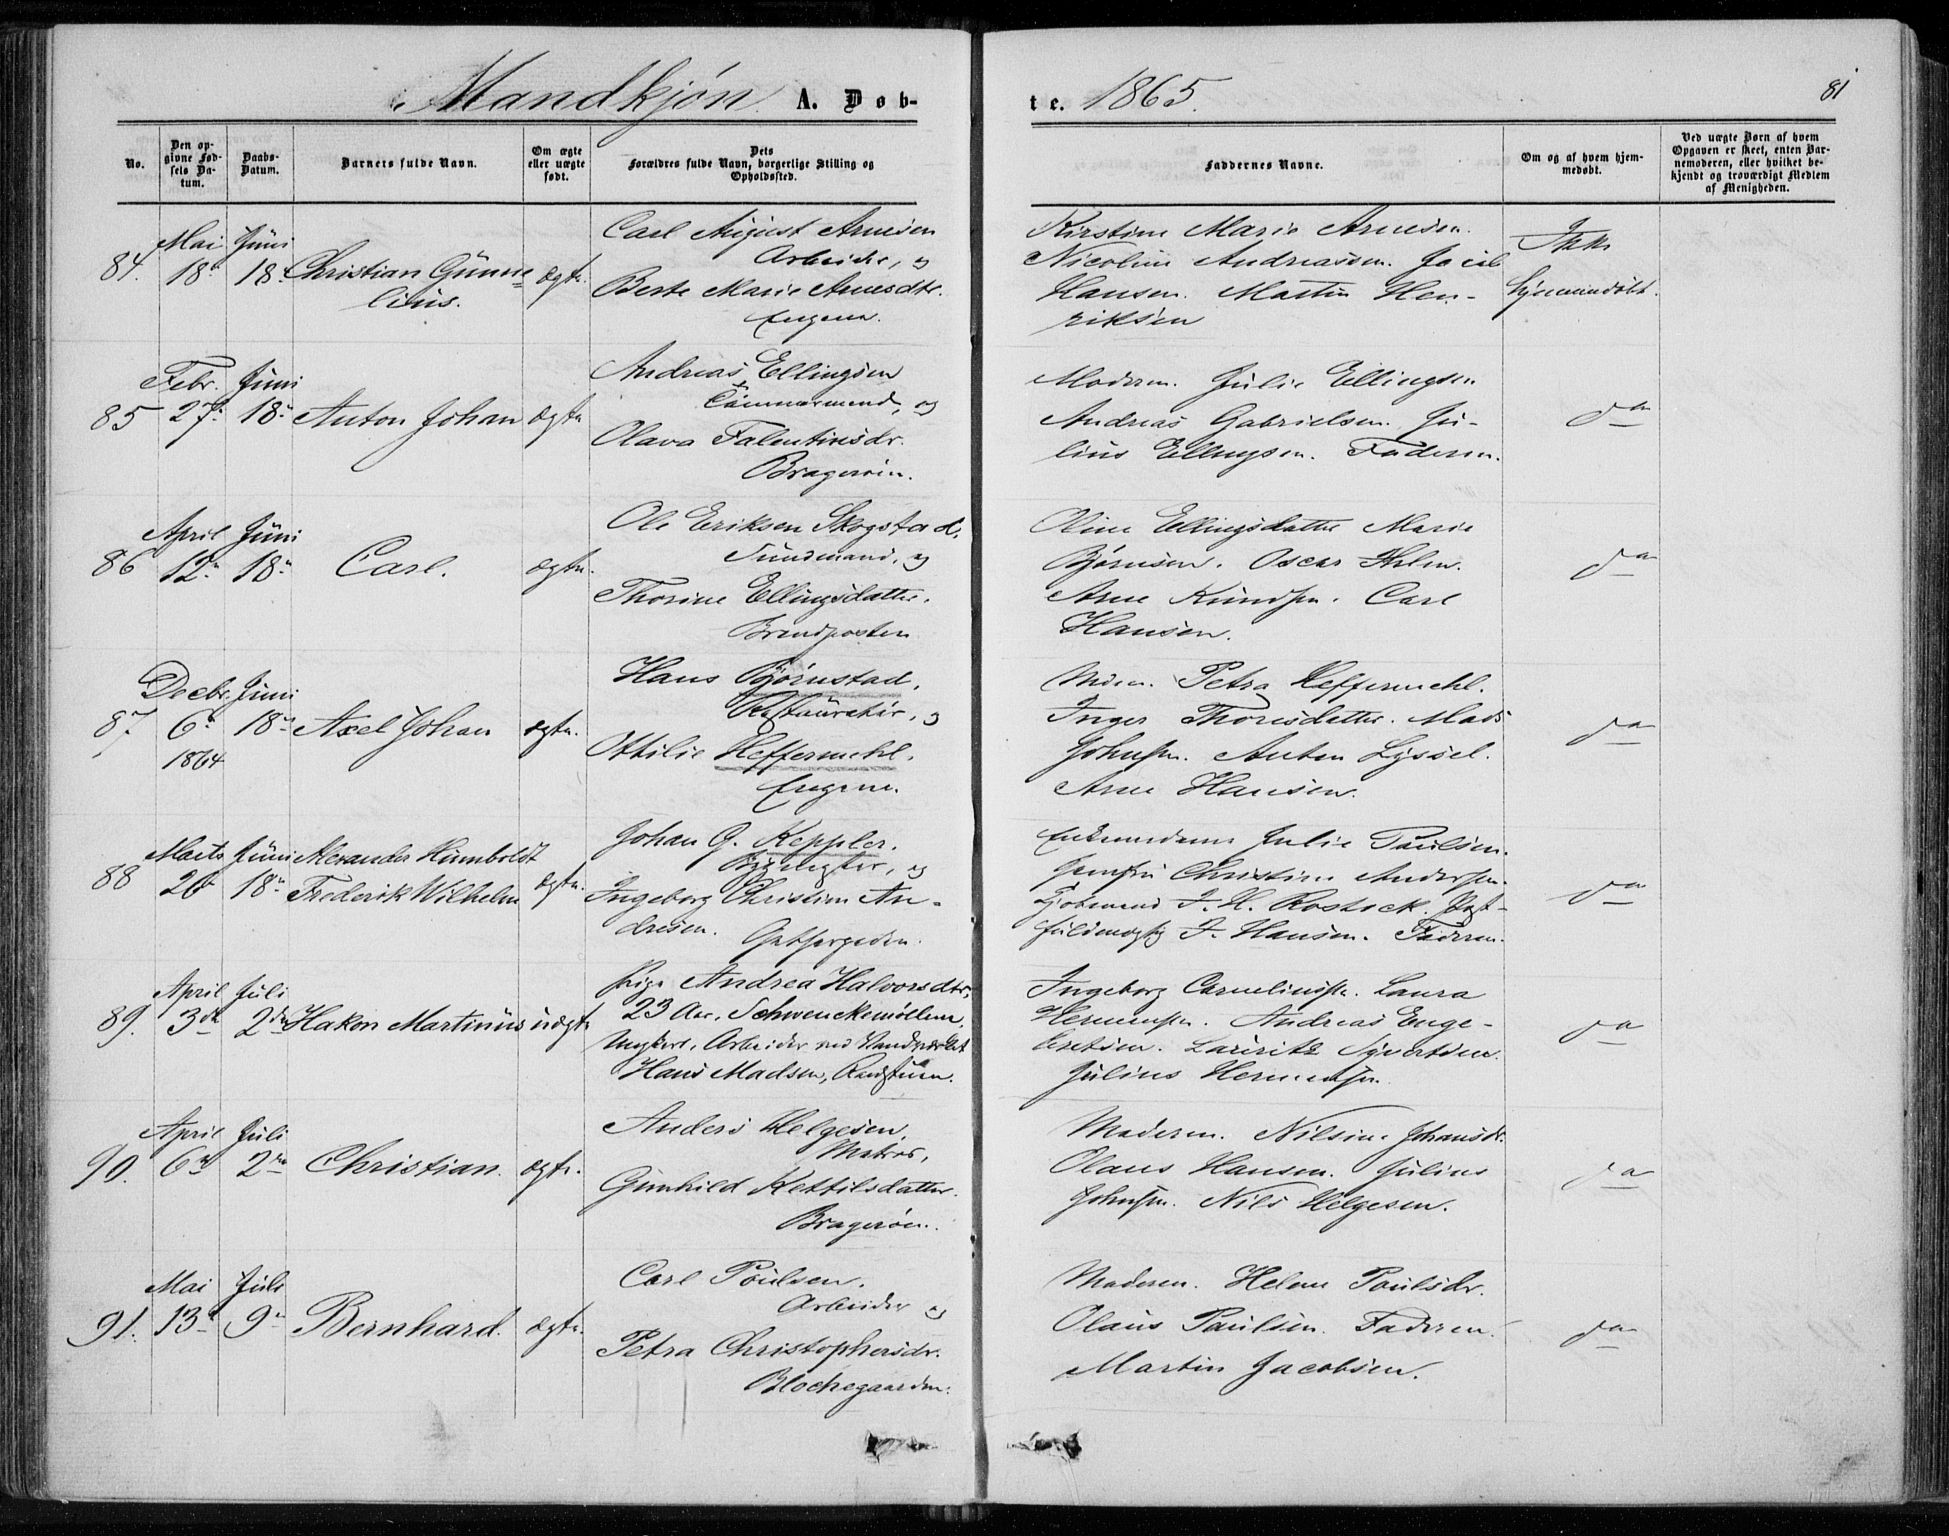 Mandkjøn. A. Døb-
te. 1865.
81
No.
Den op-
givne Fød-
sels Da-
tum.
Daabs-
Datum.
Barnets fulde Navn.
Om ægte
eller uægte
født.
Dets
Forældres fulde Navn, borgerlige Stilling og
Opholdssted.
Faddernes Navne.
Om og af hvem hjem-
medøbt.
Ved uægte Børn af hvem
Opgaven er skeet, enten Bar-
nemoderen, eller hvilket be-
kjendt og troværdigt Medlem
af Menigheden.
84. Mai 18de Juni 18de Christian Günne-
lius. ægte.
Carl August Arnesen
Arbeider, og
Berte Marie Arnesdtr.
Engene.
Kirstine Marie Arnesen.
Nicoline Andreasen.
Hansen. Martin Hen-
riksen
Ikke
hjemmedøbt.
85 Febr. 27de Juni 18de Anton Johan ægte
Andreas Ellingsen
Tømmermand, og
Olava Falentinsdr.
Bragerøen.
Moderen. Julie Ellingsen
Andreas Gabrielsen. Ju-
lius Ellingsen. Faderen.
do
86 April 12te Juni 18de Carl. ægte.
Ole Eriksen Skogstad,
Sundmand, og
Thorine Ellingsdatter.
Brandposten
Oline Ellingsdatter Marie
Bjørnsen. Oscar Holm.
Arne Knudsen. Carl
Hansen.
do
87 Decbr. 6te 1864 Juni 18de Axel Johan ægte.
Hans Bjørnstad,
Restauratør, og
Ottilie Heffermehl.
Engene.
Petra Heffermehl.
Inger Thorisdatter. Mads
Johnsen. Anton Lyssel.
Arne Hansen.
do
88 Marts 20 Juni 18de Alexander Humboldt
Frederik Wilhelm ægte.
Johan G. Keppler.
og
Ingeborg Christine An-
dresen.
Enkemadame Julie Paulsen.
Jomfru Christine Andersen.
J. H. Rostock. Post-
fuldmægtig J. Hansen. Faderen.
do
89. April 3die Juli 2den Hakon Martinius uægte
Pige Andrea Halvorsdtr,
23 Aar, Schwenckemøllen.
Ungkarl, Arbeider ved Vandværket
Hans Madsen,
Ingeborg Corneliussen. Laura
Hermansen. Andreas Enge-
bretsen. Lauritz Syvertsen.
Julius Hermansen.
do
90. April 6te Juli 2den Christian. ægte.
Anders Helgesen.
Matros,
Gunhild Kettilsdatter.
Bragerøen.
Moderen. Nilsine Johansdr.
Olaus Hansen. Julius
Johnsen. Nils Helgesen.
do
91. Mai 13de Juli 9de Bernhard. ægte.
Carl Poulsen.
Arbeider og
Petra Christophersdr.
Blochegaarden.
Moderen. Helene Poulsdr.
Olaus Paulsen. Faderen.
Martin Jacobsen.
do